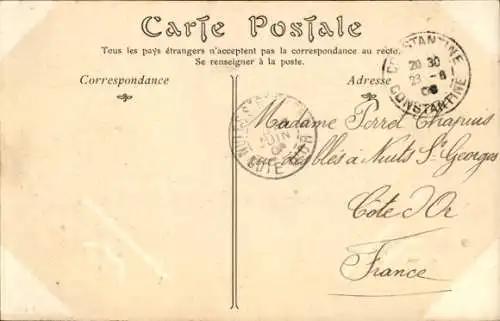 Carte Postale
Tous les pays étrangers n'acceptent pas la correspondance au recto.
Se renseigner à la poste.
Correspondance
Adresse
CONSTANTINE
20 30
23 -6
08
CONSTANTINE
JUIN
CÔTE D'OR
Madame Perret Chapuis
rue des blés à Nuits St Georges
Côte d'Or
France